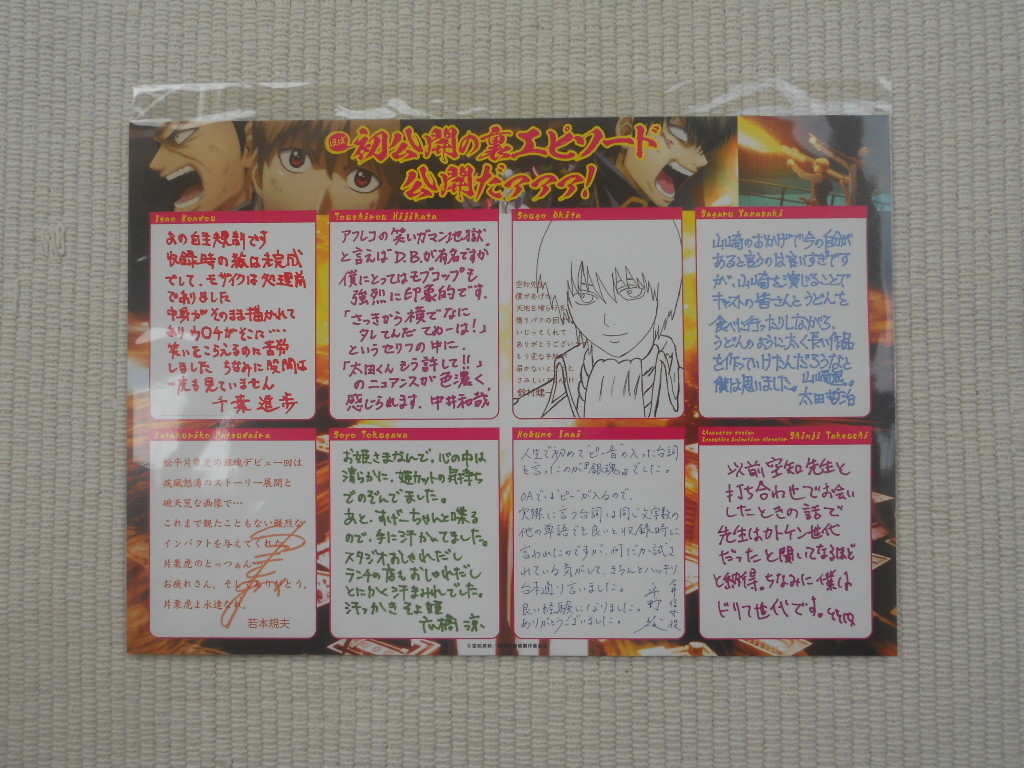 ほぼ 初公開の裏エピソード
公開だァァァ!
Isao Kondou
あの自主規制です
収録時の絵は未完成
でして、モザイクは処理前
でありました
中身がそのまま描かれて
おりウ〇チがそこに‥‥
笑いをこらえるのに苦労
しました ちなみに股間は
一度も見ていません
千葉進歩
Toushirou Hijikata
アフレコの笑いガマン地獄
と言えばD.B.が有名ですが
僕にとってはモブコップも
強烈に印象的です。
「さっきから横でなに
タレてんだ てめーは!」
というセリフの中に、
「太田くん もう許して!!」
のニュアンスが色濃く、
感じられます。中井和哉
Sougo Okita
空知先生
僕があげた
天地を喰らうを
借りパクの回で
いじってくれて
ありがとうございます
もう変な手紙が
届かないと
さみしい
鈴村健一
Sagaru Yamazaki
山崎のおかげで今の自分が
あると言うのは言いすぎです
が、山崎を演じることで
キャストの皆さんとうどんを
食べに行ったりしながら、
うどんのように太く長い作品
を作っていけたんだろうなと
僕は思いました。山崎退。
太田哲治
Katakuriko Matsudaira
松平片栗虎の銀魂デビュー回は
疾風怒濤のストーリー展開と
破天荒な画像で…
これまで観たこともない鮮烈な
インパクトを与えてくれた
片栗虎のとっつぁん…
お疲れさん、そしてありがとう。
片栗虎よ永遠なれ。
若本規夫
Soyo Tokugawa
お姫さまなんで、心の中は
清らかに、姫カットの気持ち
でのぞんでました。
あと、すげーちゃんと喋る
ので、手に汗かいてました。
スタジオおしゃれだし
ランチの店もおしゃれだし
とにかく汗まみれでした。
汗っかき そよ姫
広橋 涼
Nobume Imai
人生で初めて"ピー音"の入った台詞
を言ったのが『銀魂』でした。
OAでは"ピー"が入るので、
実際に言う台詞は同じ文字数の
他の単語でも良いと収録時に
言われたのですが、何だか試さ
れている気がして、きちんとハッキリ
台本通り言いました。
良い経験になりました。
ありがとうございました。
今井信女役
平野 綾
Character design
Executive Animation director Shinji Takeuchi
以前空知先生と
打ち合わせでお会い
したときの話で
先生はカトケン世代
だったと聞いてなるほど
と納得。ちなみに僕は
ドリフ世代です。